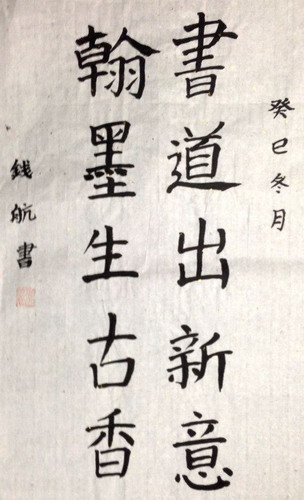 癸巳冬月
書道出新意
翰墨生古香
錢航書